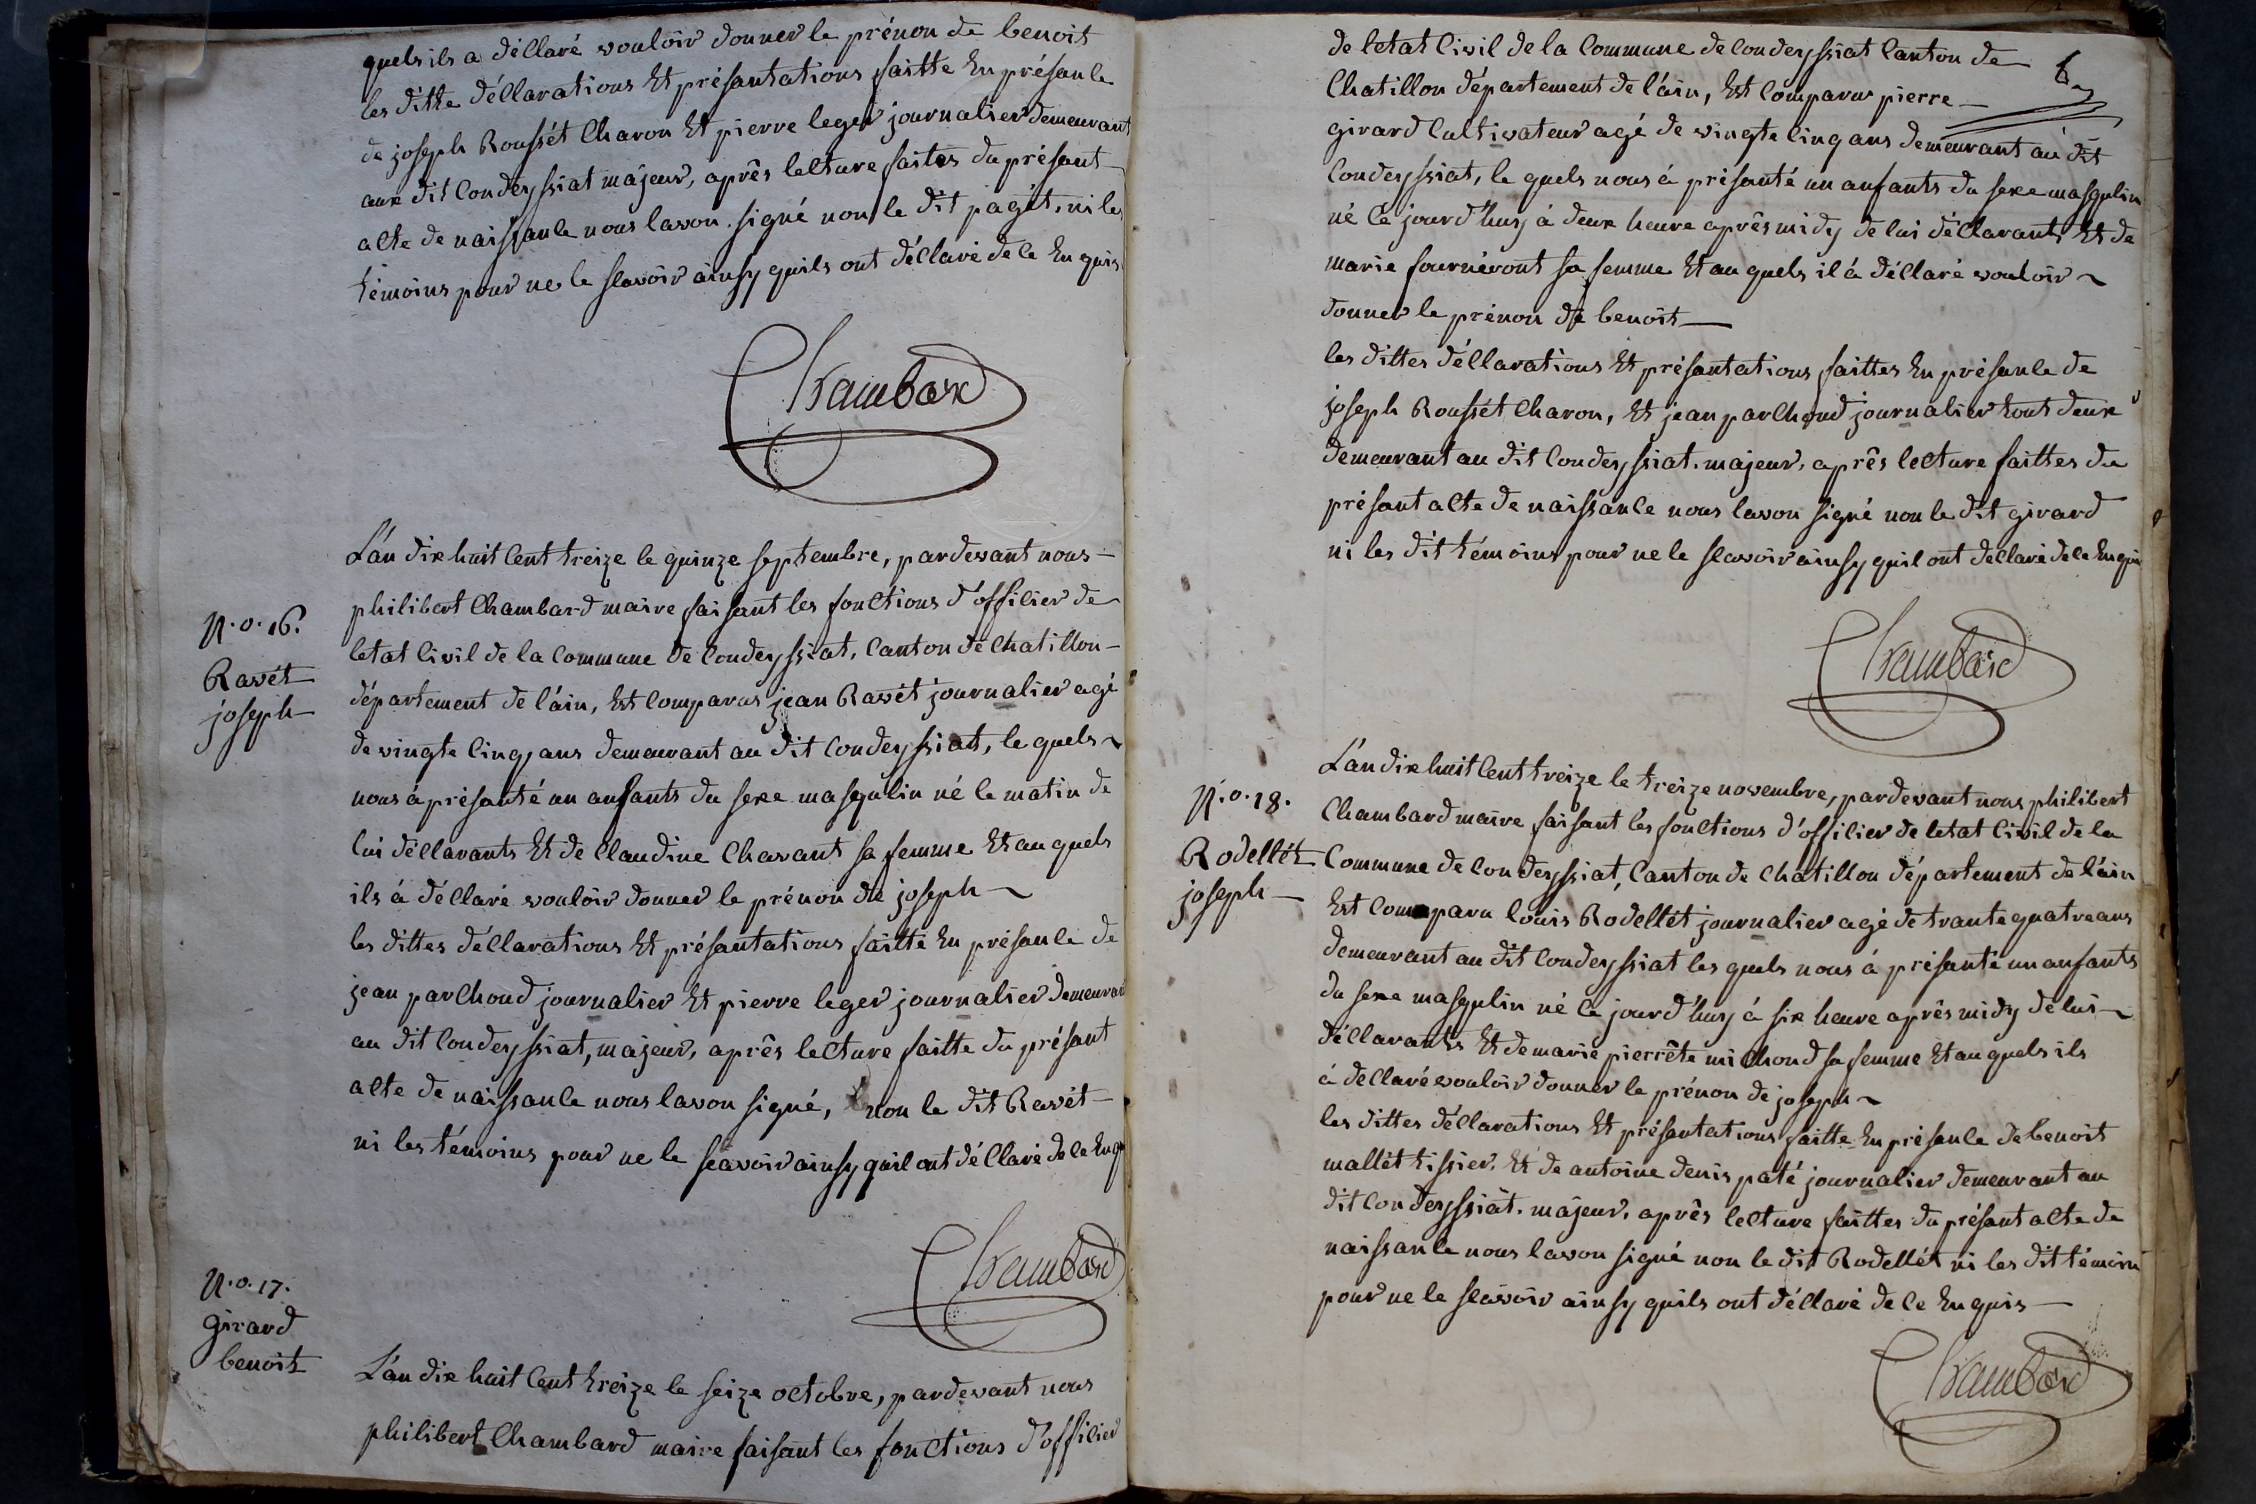 quels ils a déclaré vouloir donner le prénon de benoit
les ditte déclarations Et présantations faitte En présance
de joseph Roussét Charon Et pierre leger journalier demeurant
aux dit Condeyssiat májeur, aprês lecture faites du présant
acte de naissance nous lavon signé non le dit pagét, ni les
témoins pour ne le sçavoir ainsy quils ont déclaré de ce En quis
Chambard
L'án dix huit Cent treize le quinze septembre, pardevant nous
philibert Chambard maire faisant les fonctions d'officier de
letat Civil de la Commune de Condeyssiat, Canton de Chatillon
département de láin, Est Comparus jean Ravét journalier agé
de vingte Cinq ans demeurant au dit Condeyssiat, le quels
nous á présanté un anfants du sexe masqulin né le matin de
lui déclarants Et de Claudine Chavant sa femme Et au quels
ils á déclaré vouloir donner le prénon de joseph
les dittes déclarations Et présantations faitte En présance de
jean parchoud journalier Et pierre leger journalier demeurant
au dit Condeyssiat, majeur, aprês lecture faitte du présant
acte de naissance nous lavon signé, non le dit Ravét
ni les témoins pour ne le sçavoir ainsy quil ont déclaré de ce Enq
Chambard
N.o.16.
Ravét
joseph
N.o.17.
girard
benoit
L'án dix huit Cent treize le seize octobre, pardevant nous
philibert Chambard maire faisant les fonctions d'officier
de letat Civil de la Commune de Condeyssiat Canton de
Chatillon département de láin, Est Comparus pierre
girard Cultivateur agé de vingte Cinq ans demeurant au dit
Condeyssiat, le quels nous á présanté un anfants du sexe masqulin
né Ce jourd'huy á deux heure aprês midy de lui déclarants Et de
marie fournéront sa femme Et au quels il á déclaré vouloir
donner le prénon de benoit
les dittes déclarations Et présantations faittes En présance de
joseph Roussét Charon, Et jean parchoud journalier tout deux
demeurant au dit Condeyssiat. majeur, aprês lecture faittes du
présant acte de naissance nous lavon signé non le dit girard
ni les dit témoins pour ne le sçavoir ainsy quil ont déclaré de ce Enquis
Chambard
N.o.18.
Rodellét
joseph
L'án dix huit Cent treize le treize novembre, pardevant nous philibert
Chambard maire faisant les fonctions d'officier de letat Civil de la
Commune de Condeyssiat, Canton de Chátillon département de láin
Est Comparu louis Rodellét journalier agé de trante quatre ans
demeurant au dit Condeyssiat les quels nous á présanté un anfants
du sexe masqulin né Ce jourd'huy á six heure aprês midy de lui
déclarants Et de marie pierrête michoud sa femme Et au quels ils
á déclaré vouloir donner le prénon de joseph
les dittes déclarations Et présantations faitte En présance de benoit
mallét tissier. Et de antoine denis paté journalier demeurant au
dit Condeyssiat. májeur. aprês lecture faittes du présant acte de
naissance nous lavon signé non le dit Rodellét ni les dit témoins
pour ne le sçavoir ainsy quils ont déclaré de ce En quis
Chambard